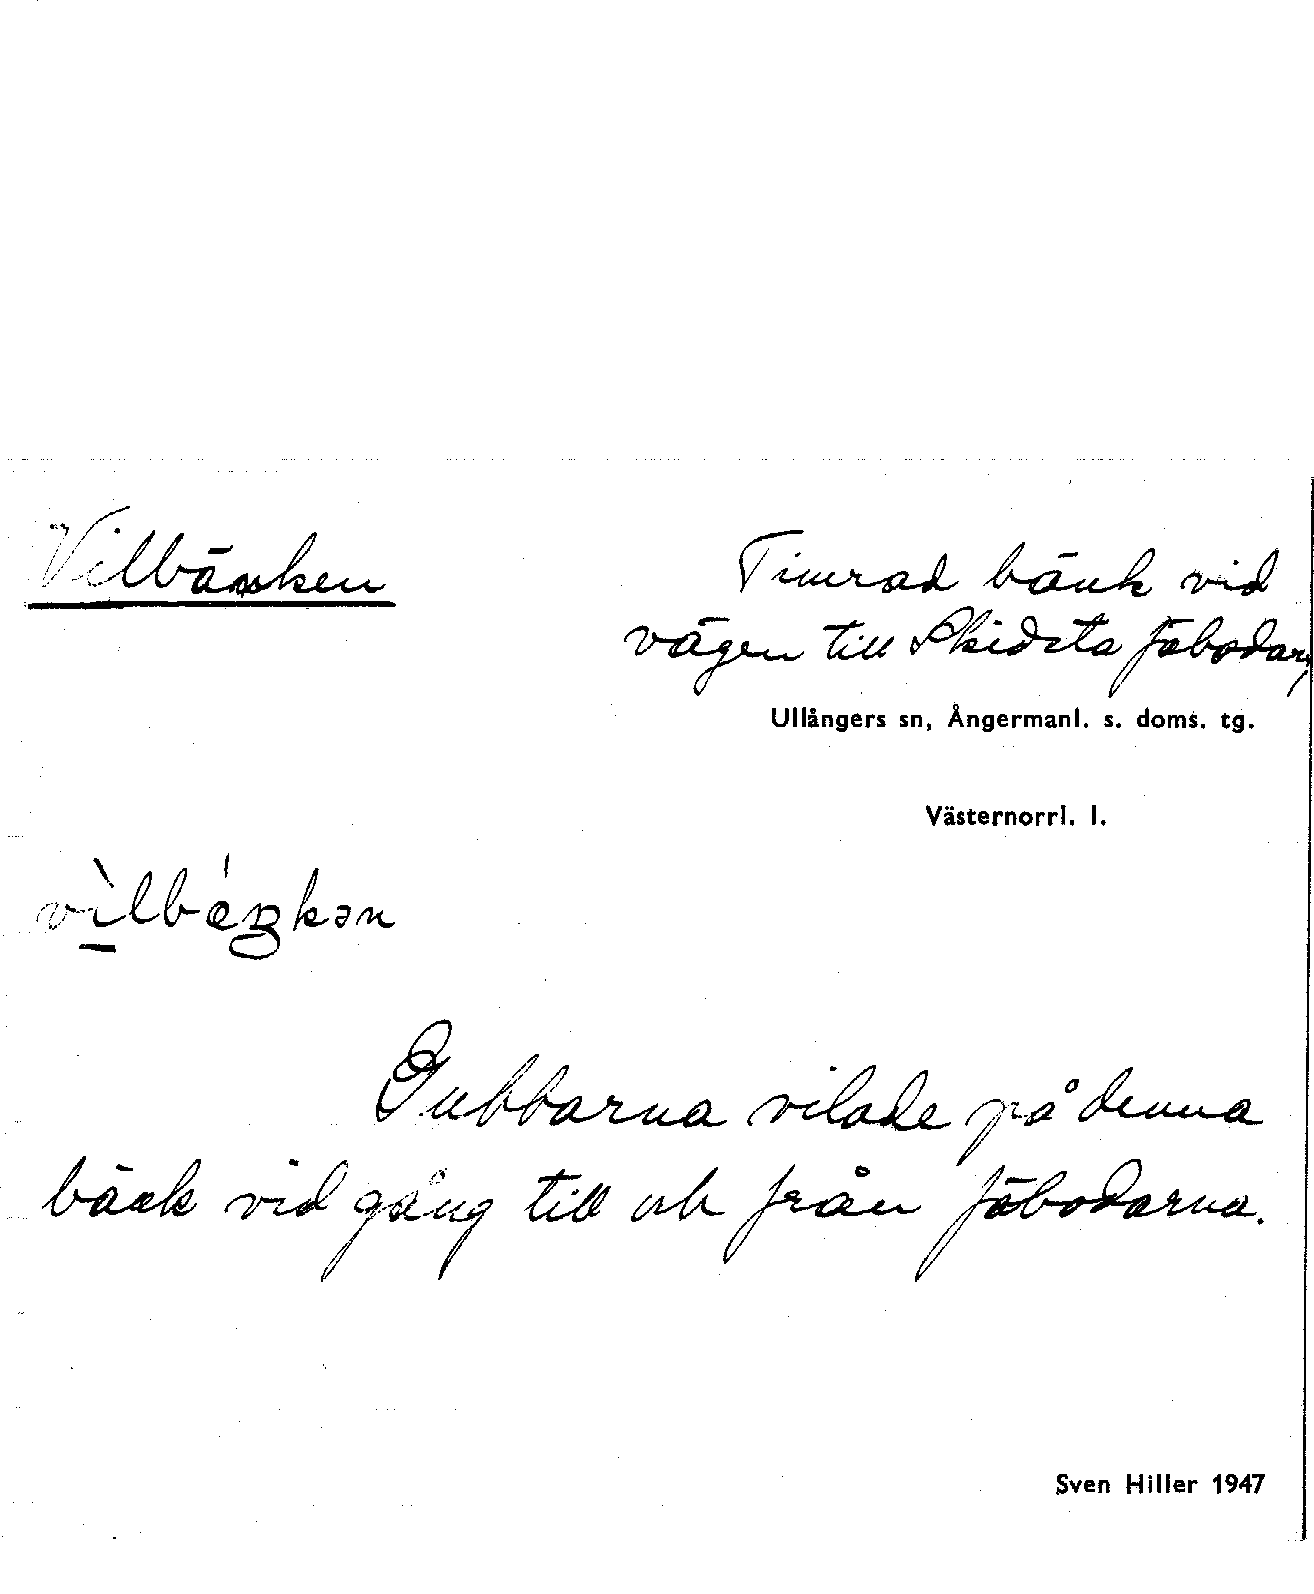 Vilbänken
Timrad bänk vid
vägen till Skidsta fäbodar,
Ullångers sn, Ångermanl. s. doms. tg.
Västernorrl. l.
vìlbéŋkən
Gubbarna vilade på denna
bänk vid gång till och från fäbodarna.
Sven Hiller 1947